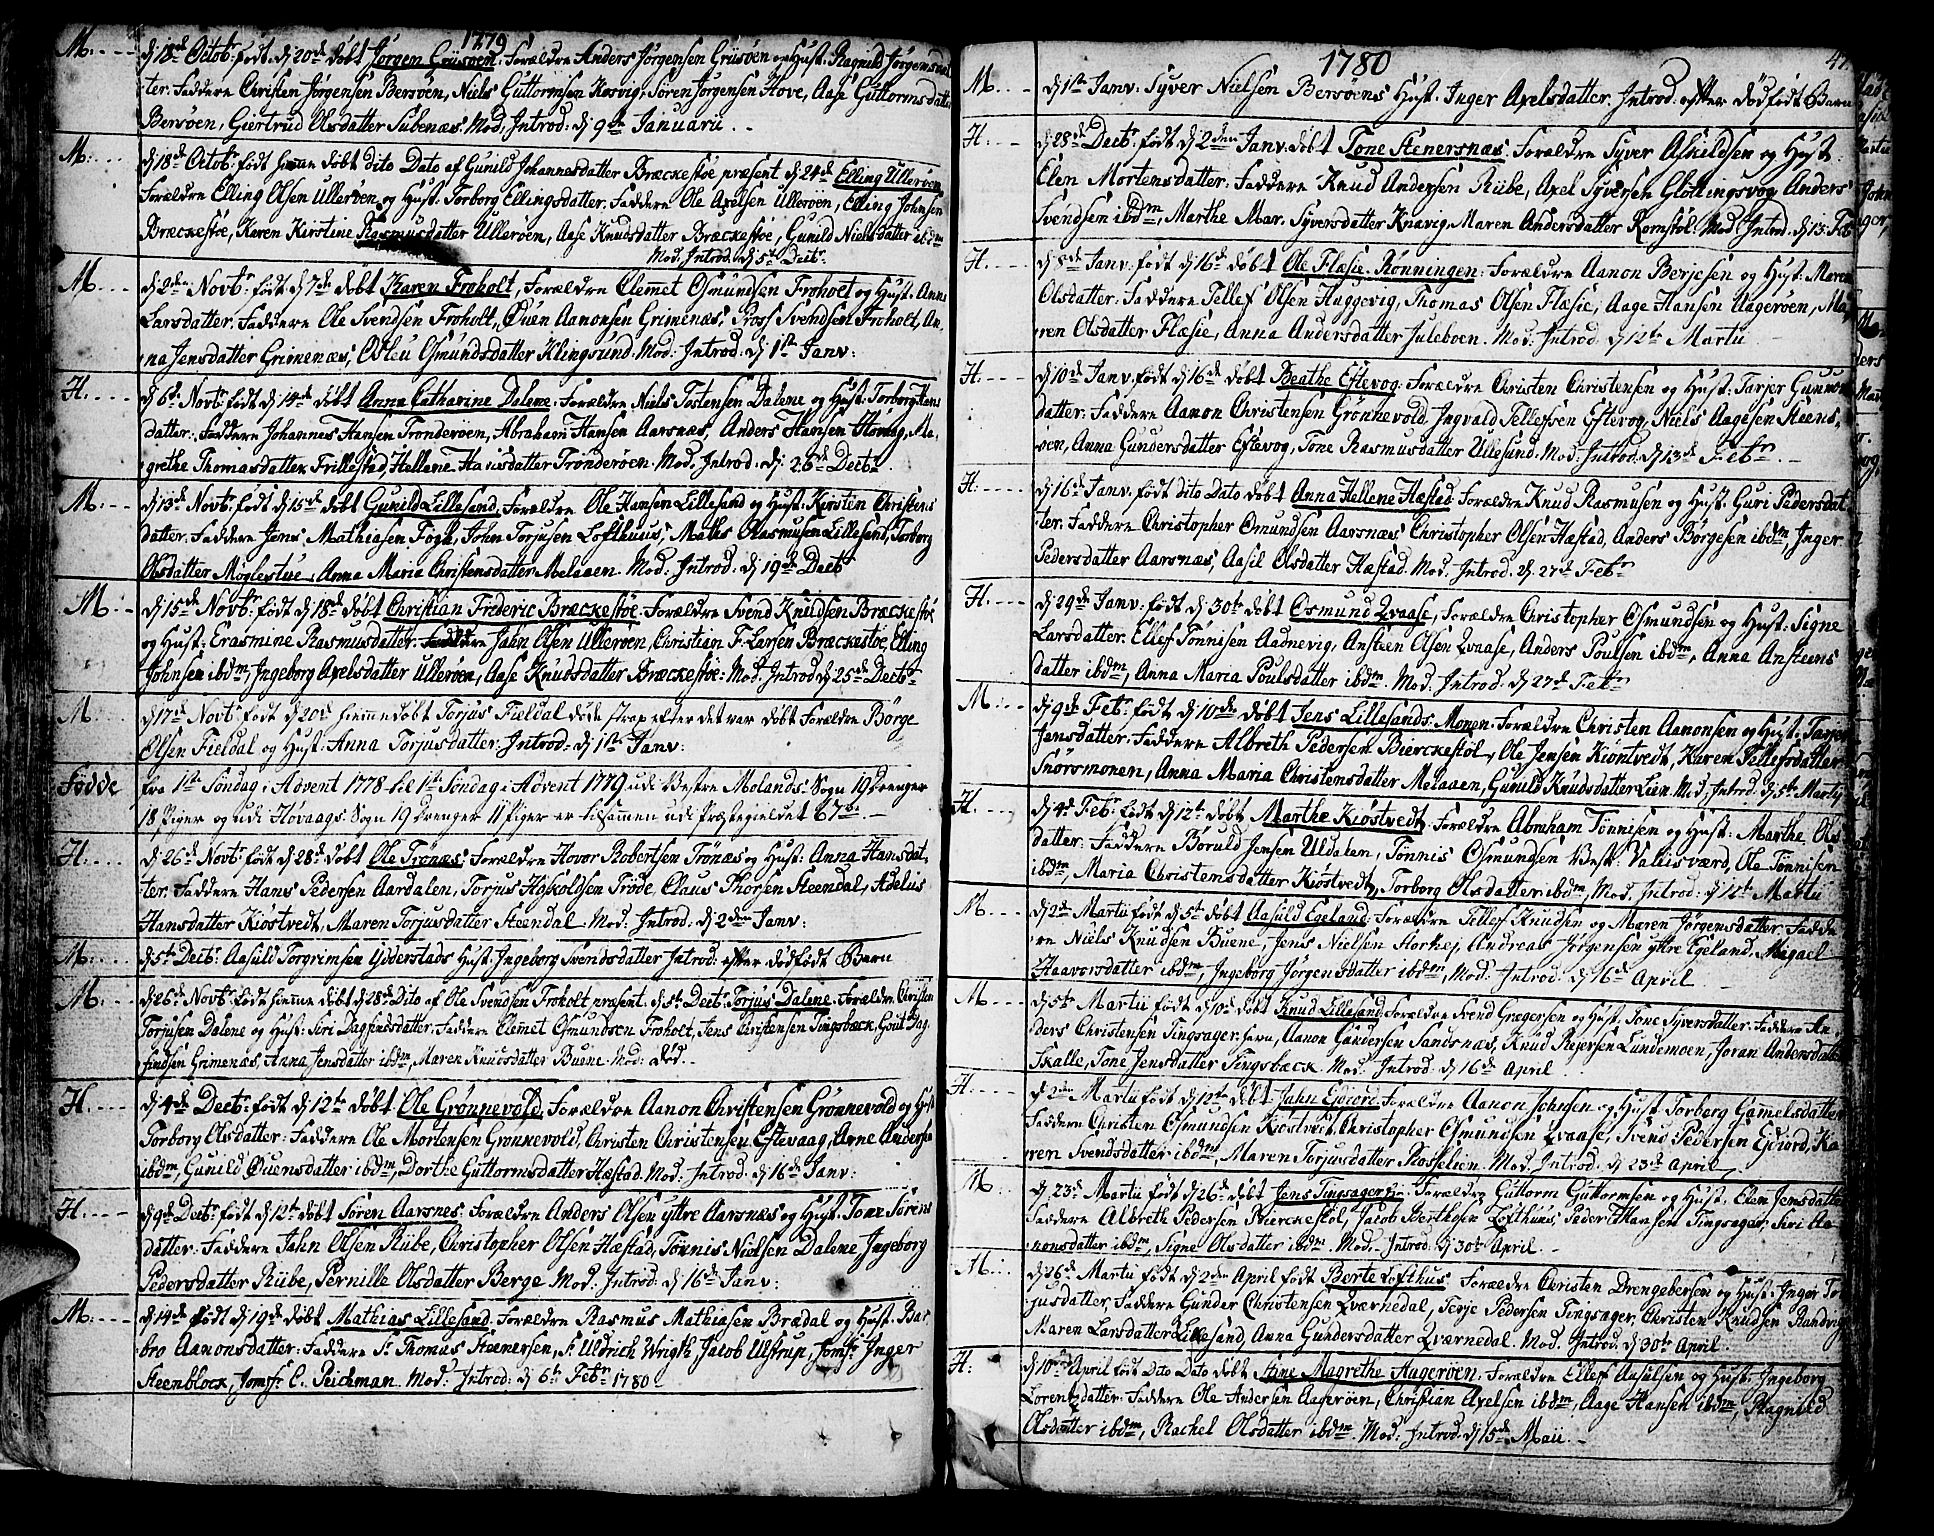 1779
M: d 18de Octobr født d 20de døbt Jørgen Griisøen. Forældre Anders Jørgensen Griisøen og Hust. Ragnild Jørgensdat
ter. Faddere Christen Jørgensen Bersøen, Niels Guttormsen Kosvig, Søren Jørgensen Hove, Aase Guttormsdatter
Bersøen, Giertrud Olsdatter Subenæs. Mod. Introd: d 9de Januarii
M: d 18de Octobr født hiemme døbt dito Dato af Gunild Johannesdatter Bræckestøe præsent d 24de Elling Ulleröen
Forældre Elling Olsen Ulleröen og Hust: Torborg Ellingsdatter. Faddere Ole Axelsen Ulleröen, Elling Johnsen
Bræckestøe, Karen Kirstine Rasmusdatter Ulleröen, Aase Knudsdatter Bræckestøe, Gunild Nielsdatter ibdm
Mod. Introd. d 5t Decbr
M d 2den Novbr født d 7de døbt Karen Froholt, Forældre Clemet Osmundsen Froholt og Hust: Anna
Larsdatter. Faddere Ole Svendsen Froholt, Øuen Aanonsen Grimenæs, Pross Svendsen Froholt, An-
na Jensdatter Grimenæs, Osleu Osmundsdatter Klingsund. Mod: Introd: d 1ste Janv:
H. d 6te Novbr født d 14de døbt Anna Catharine Dalene. Forældre Niels Tostensen Dalene og Hust: Torborg Hans
datter. Faddere Johannes Hansen Tronderöen, Abraham Hansen Aarsnæs, Anders Hansen, Ma-
grethe Thomasdatter Frillestad, Hellene Hansdatter Tronderöen. Mod. Introd. d: 26de Decbr
M: d 13de Novbr født d 15de døbt Gunild Lillesand. Forældre Ole Hansen Lillesand og Hust: Kirsten Christens
datter. Faddere Jens Mathiasen Fogh, John Torjusen Lofthuus, Maths Rasmusen Lillesand, Torborg
Olsdatter Møglestue, Anna Maria Christensdatter Melaaen. Mod: Introd: d 19de Decbr
M: d 15de Novbr født d 18de døbt Christian Frideric Bræckestøe. Forældre Svend Knudsen Bræckestøe
og Hust: Erasmine Rasmusdatter. Faddere Jahn Olsen Ulleröen, Christian F. Larsen Bræckestøe, Elling
Johnsen ibdm, Ingeborg Axelsdatter Ulleröen, Aase Knudsdatter Bræckestøe: Mod. Introd d 25de Decbr
M. d 17de Novbr født d 20de hiemmedøbt Torjus Fieldal døde strax efter det var døbt Forældre Børge
Olsen Fieldal og Hust: Anna Torjusdatter. Introd: d 1ste Janv:
Fødde fra 1ste Søndag i Advent 1778 til 1ste Søndag i Advent 1779 udi Vestre Molands Sogn 19 Drenger
18 Piger og udi Høvaags Sogn 19 Drenger 11 Piger er tilsammen udi Præstegieldet 67
H. d 26de Novbr født d 28de døbt Ole Trønæs. Forældre Hovor Robertsen Trönæs og Hust: Anna Hansdat-
ter. Faddere Hans Pedersen Aardalen, Torjus Høskoldsen Trøde, Claus Thorsen Steendal, Adelus
Hansdatter Kiöstvedt, Maren Torjusdatter Steendal. Mod: Introd: d 2den Janv:
M: d 5te Decbr. Aasuld Torgrimsen Ydderstads Hust. Ingeborg Svendsdatter Introd: efter dødfödt Barn
M. d 26de Novbr født hiemme døbt d 28de Dito af Ole Svendsen Froholt præsent: d 5te Decbr Torjus Dalene. Forældre Christen
Torjusen Dalene og Hust: Siri Dagfindsdatter. Faddere Clemet Osmundsen Froholt, Jens Christensen Tingsbæck, Gout Dag-
findsen Grimenæs, Anna Jensdatter ibdm, Maren Knudsdatter Buene. Mod: død.
H. d 4de Decbr født d 12te døbt Ole Grønnevold. Forældre Aanon Christensen Grønnevold og Hust
Torborg Olsdatter. Faddere Ole Mortensen Grønnevold, Christen Christensen Eftevaag, Arne Andersen
ibdm, Gunild Øuensdatter ibdm, Dorthe Guttormsdatter Hæstad. Mod: Introd: d 16de Janv:
H. d 9de Decbr født d 12te døbt Søren Aarsnes. Forældre Anders Olsen yttre Aarsnæs og Hust. Tone Sørens
datter. Faddere Jahn Olsen Riibe, Christopher Olsen Hæstad, Tønnis Nielsen Dalene, Ingeborg
Pedersdatter Riibe, Pernille Olsdatter Berge. Mod: Introd: d 16de Janv:
M: d 14de født d 19de døbt Mathias Lillesand. Forældre Rasmus Mathiasen Brædal og Hust. Bar-
bro Aanonsdatter: Faddere Sr Thomas Steenersen, Sr Uldrich Wrigth, Jacob Ulstrup, Jomfr: Inger
Steenblock, Jomfr C. Peichman. Mod: Introd: d 6te Febr 1780
1780
M: d 1ste Janv: Syver Nielsen Bersøens Hust: Inger Axelsdatter. Introd: efter dødfødt Barn
H. d 28de Decbr født d 2den Janv: døbt Tone Stenersnæs. Forældre Syver Askildsen og Hust.
Elen Mortensdatter. Faddere Knud Andersen Riibe, Axel Syversen Glottingsvog, Anders
Svendsen ibdm, Marthe Mar. Syversdatter Knavig, Maren Andersdatter Kornstol. Mod. Introd. d 13 Feb
H. d 8de Janv: født d 16de døbt Ole Flæsie-Rønningen. Forældre Aanon Berjesen og Hust: Maren
Olsdatter: Faddere Tellef Olsen Huggevig, Thomas Olsen Flæsie, Aage Hansen Aageröen, Ma-
ren Olsdatter Flæsie, Anna Andersdatter Juleboen. Mod: Introd. d 12te Martii
H. d 10de Janv: født d 16de døbt Beathe Eftevog. Forældre Christen Christensen og Hust: Tarjer Gunnors
datter: Faddere Aanon Christensen Grönnevold, Ingvald Tellefsen Eftevog, Niels Aagesen Steens-
øen, Anna Gundersdatter Eftevog, Tone Rasmusdatter Ullesund. Mod: Introd: d 13de Febr
H: d 16de Janv: født dito Dato døbt Anna Hellene Hæstad. Forældre Knud Rasmusen og Hust: Guri Pedersdat-
ter. Faddere Christopher Osmundsen Aarsnæs, Christopher Olsen Hæstad, Anders Børgesen ibdm, Inger
Pedersdatter Aarsnæs, Aasil Olsdatter Hæstad. Mod: Introd: d. 27de Febr
H: d 29de Janv: født d 30te døbt Osmund Qvaase, Forældre Christopher Osmundsen og Hust: Signe
Larsdatter. Ellef Tönnisen Aadnevig, Ansteen Olsen Qvaase, Anders Poulsen ibdm, Anna Ansteens
datter ibdm, Anna Maria Poulsdatter ibdm. Mod. Introd: d 27de Febr
M: d 9de Febr født d 10de døbt Jens Lillesands-Monen. Forældre Christen Aanonsen og Hust: Tarjer
Jensdatter: Faddere Albreth Pedersen Bierckestøl, Ole Jensen Kiöstvedt, Karen Tellefsdatter
Snøresmonen, Anna Maria Christensdatter Melaaen, Gunild Knudsdatter Lien. Mod: Introd: d 5te Martij
H. d 4de Febr født d 12te døbt Marthe Kiöstvedt. Forældre Abraham Tönnisen og Hust: Marthe Ols
datter: Faddere Boruld Jensen Uldalen, Tønnis Osmundsen Vest: Vallisværd, Ole Tönnisen
ibdm, Maria Christensdatter Kiöstvedt, Torborg Olsdatter ibdm, Mod: Introd: d 12te Martii
M. d 2de Martii født d 5te døbt Aasuld Egeland. Forældre Tellef Knudsen og Maren Jørgensdatter. Fadde
re Niels Knudsen Buene, Jens Nielsen Storhej, Andreas Jørgensen yttre Egeland, Migael
Haavorsdatter ibdm, Ingeborg Jørgensdatter ibdm, Mod: Introd: d 16de April
M. d 5te Martii født d 10de døbt Knud Lillesand. Forældre Svend Grægersen og Hust. Tone Syversdatter. Faddere An-
ders Christensen Tingsager: havn, Aanon Gundersen Sandsnæs, Knud Rejersen Lundemoen, Joran Andersdatter
Skalle, Tone Jensdatter Tingsbæck. Mod: Introd: d 16de April
H. d 2den Martii født d 12te døbt Jahn Ejdiord. Forældre Aanon Johnsen og Hust: Torborg Gammelsdatter
Faddere Christen Osmundsen Kiöstvedt, Christopher Osmundsen Qvaase, Svend Pedersen Ejdiord, Ka-
ren Svendsdatter ibdm, Maren Torjusdatter Rosselien. Mod: Introd: d 23de April
M: d. 23de Martii født d 26de døbt Jens Tingsager. Forældre Guttorm Guttormsen og Hust: Elen Jensdatter
Faddere Albreth Pedersen Bierckestøl, Jacob Berthesen Lofthuus, Peder Hansen Tingsager, Siri Aa-
nonsdatter ibdm, Signe Olsdatter ibdm. Mod: Introd: d 30te April.
M: d 26de Martii født d 2den April født Berte Lofthus. Forældre Christen Drengebersen og Hust: Inger To-
rjusdatter. Faddere Gunder Christensen Qværnedal, Terje Pedersen Tingsager, Christen Knudsen Randvig
Maren Larsdatter Lillesand, Anna Gundersdatter Qværnedal. Mod: Introd: d 30te April
H: d 10de April født Dito Dato døbt Ane Magrethe Aageröen. Forældre Ellef Aasulsen og Hust: Ingeborg
Lorentzdatter. Faddere Ole Andersen Aageröen, Christian Axelsen ibdm, Aage Hansen ibdm, Ragnild
Olsdatter ibdm, Rachel Olsdatter ibdm. Mod: Introd: d 15de Maii